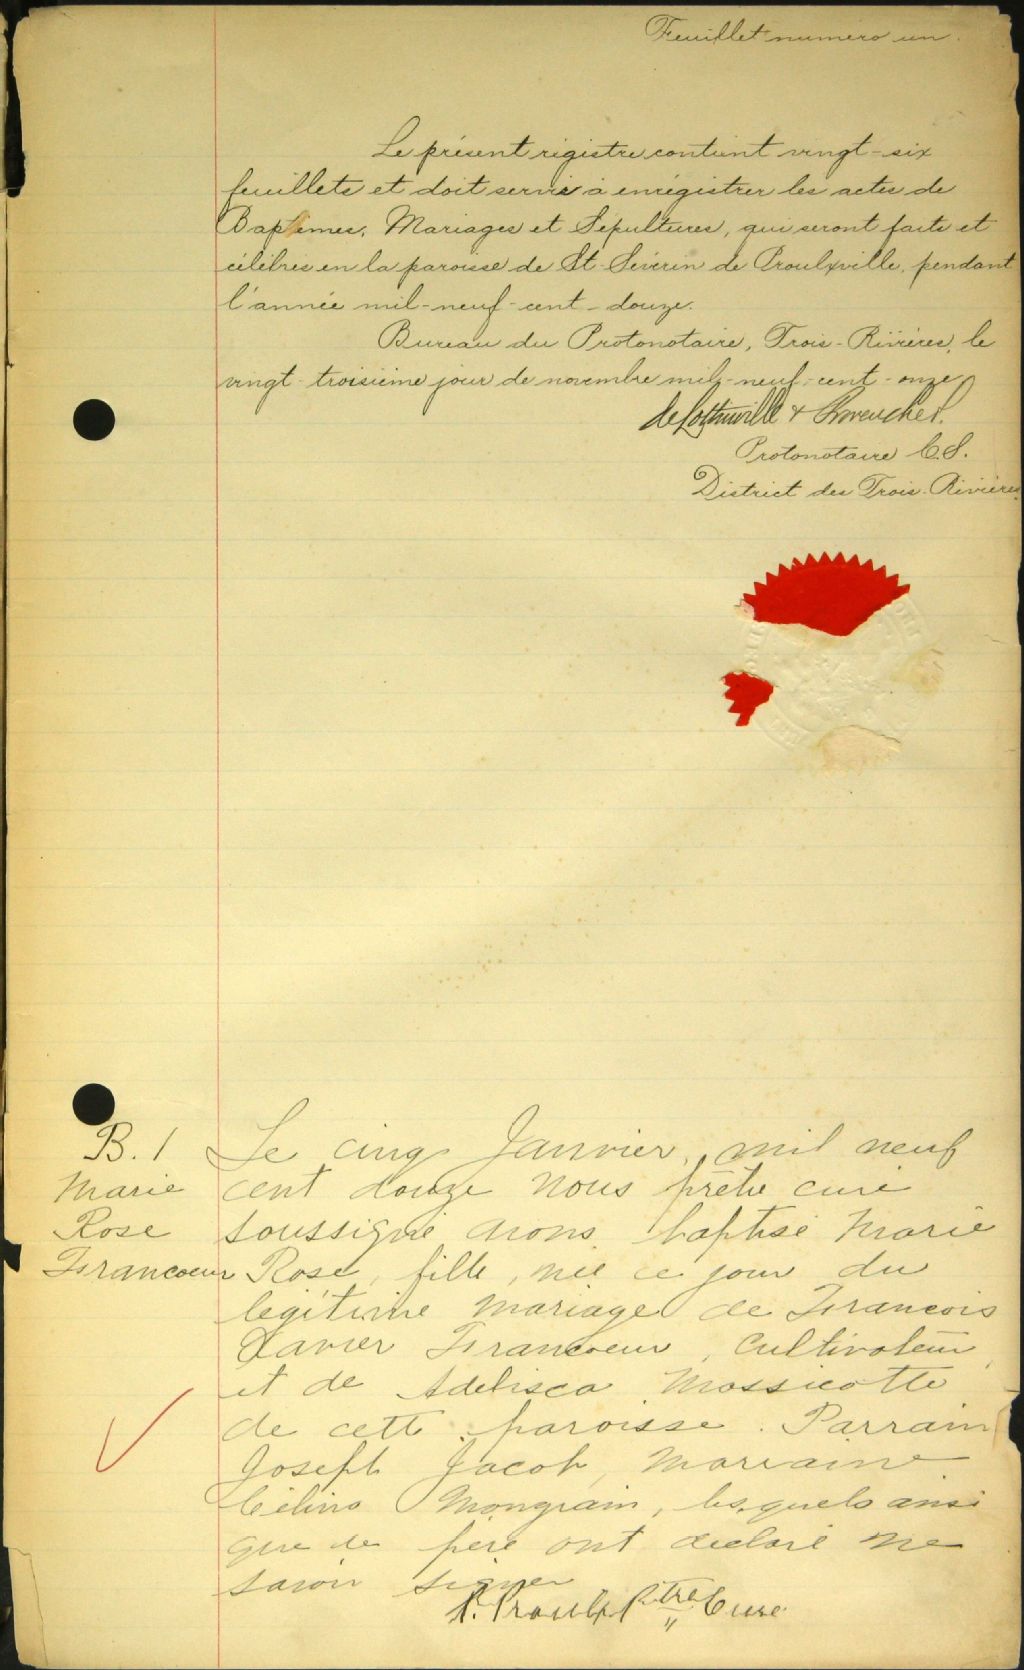 Feuillet numero un.
Le présent régistre contient vingt-six
feuillets et doit servir à enrégistrer les actes de
Baptêmes, Mariages et Sépultures, qui seront faits et
célébrés en la paroisse de St Séverin de Proulxville, pendant
l'année mil-neuf-cent-douze.
Bureau du Protonotaire, Trois-Rivières, le
vingt-troisième jour de novembre mil-neuf-cent-onze
Protonotaire C.S.
District des Trois-Rivières
B. 1
Marie
Rose
Francoeur
Le cinq Janvier, mil neuf
cent douze nous prêtre curé
soussigné avons baptisé Marie
Rose, fille, née ce jour du
légitime mariage de Francois
Xavier Francoeur, cultivateur,
et de Adelisca Massicotte
de cette paroisse. Parrain
Joseph Jacob, marraine
Célina Mongrain, lesquels ainsi
que le père ont déclaré ne
savoir signer
P. Proulx Ptre Curé